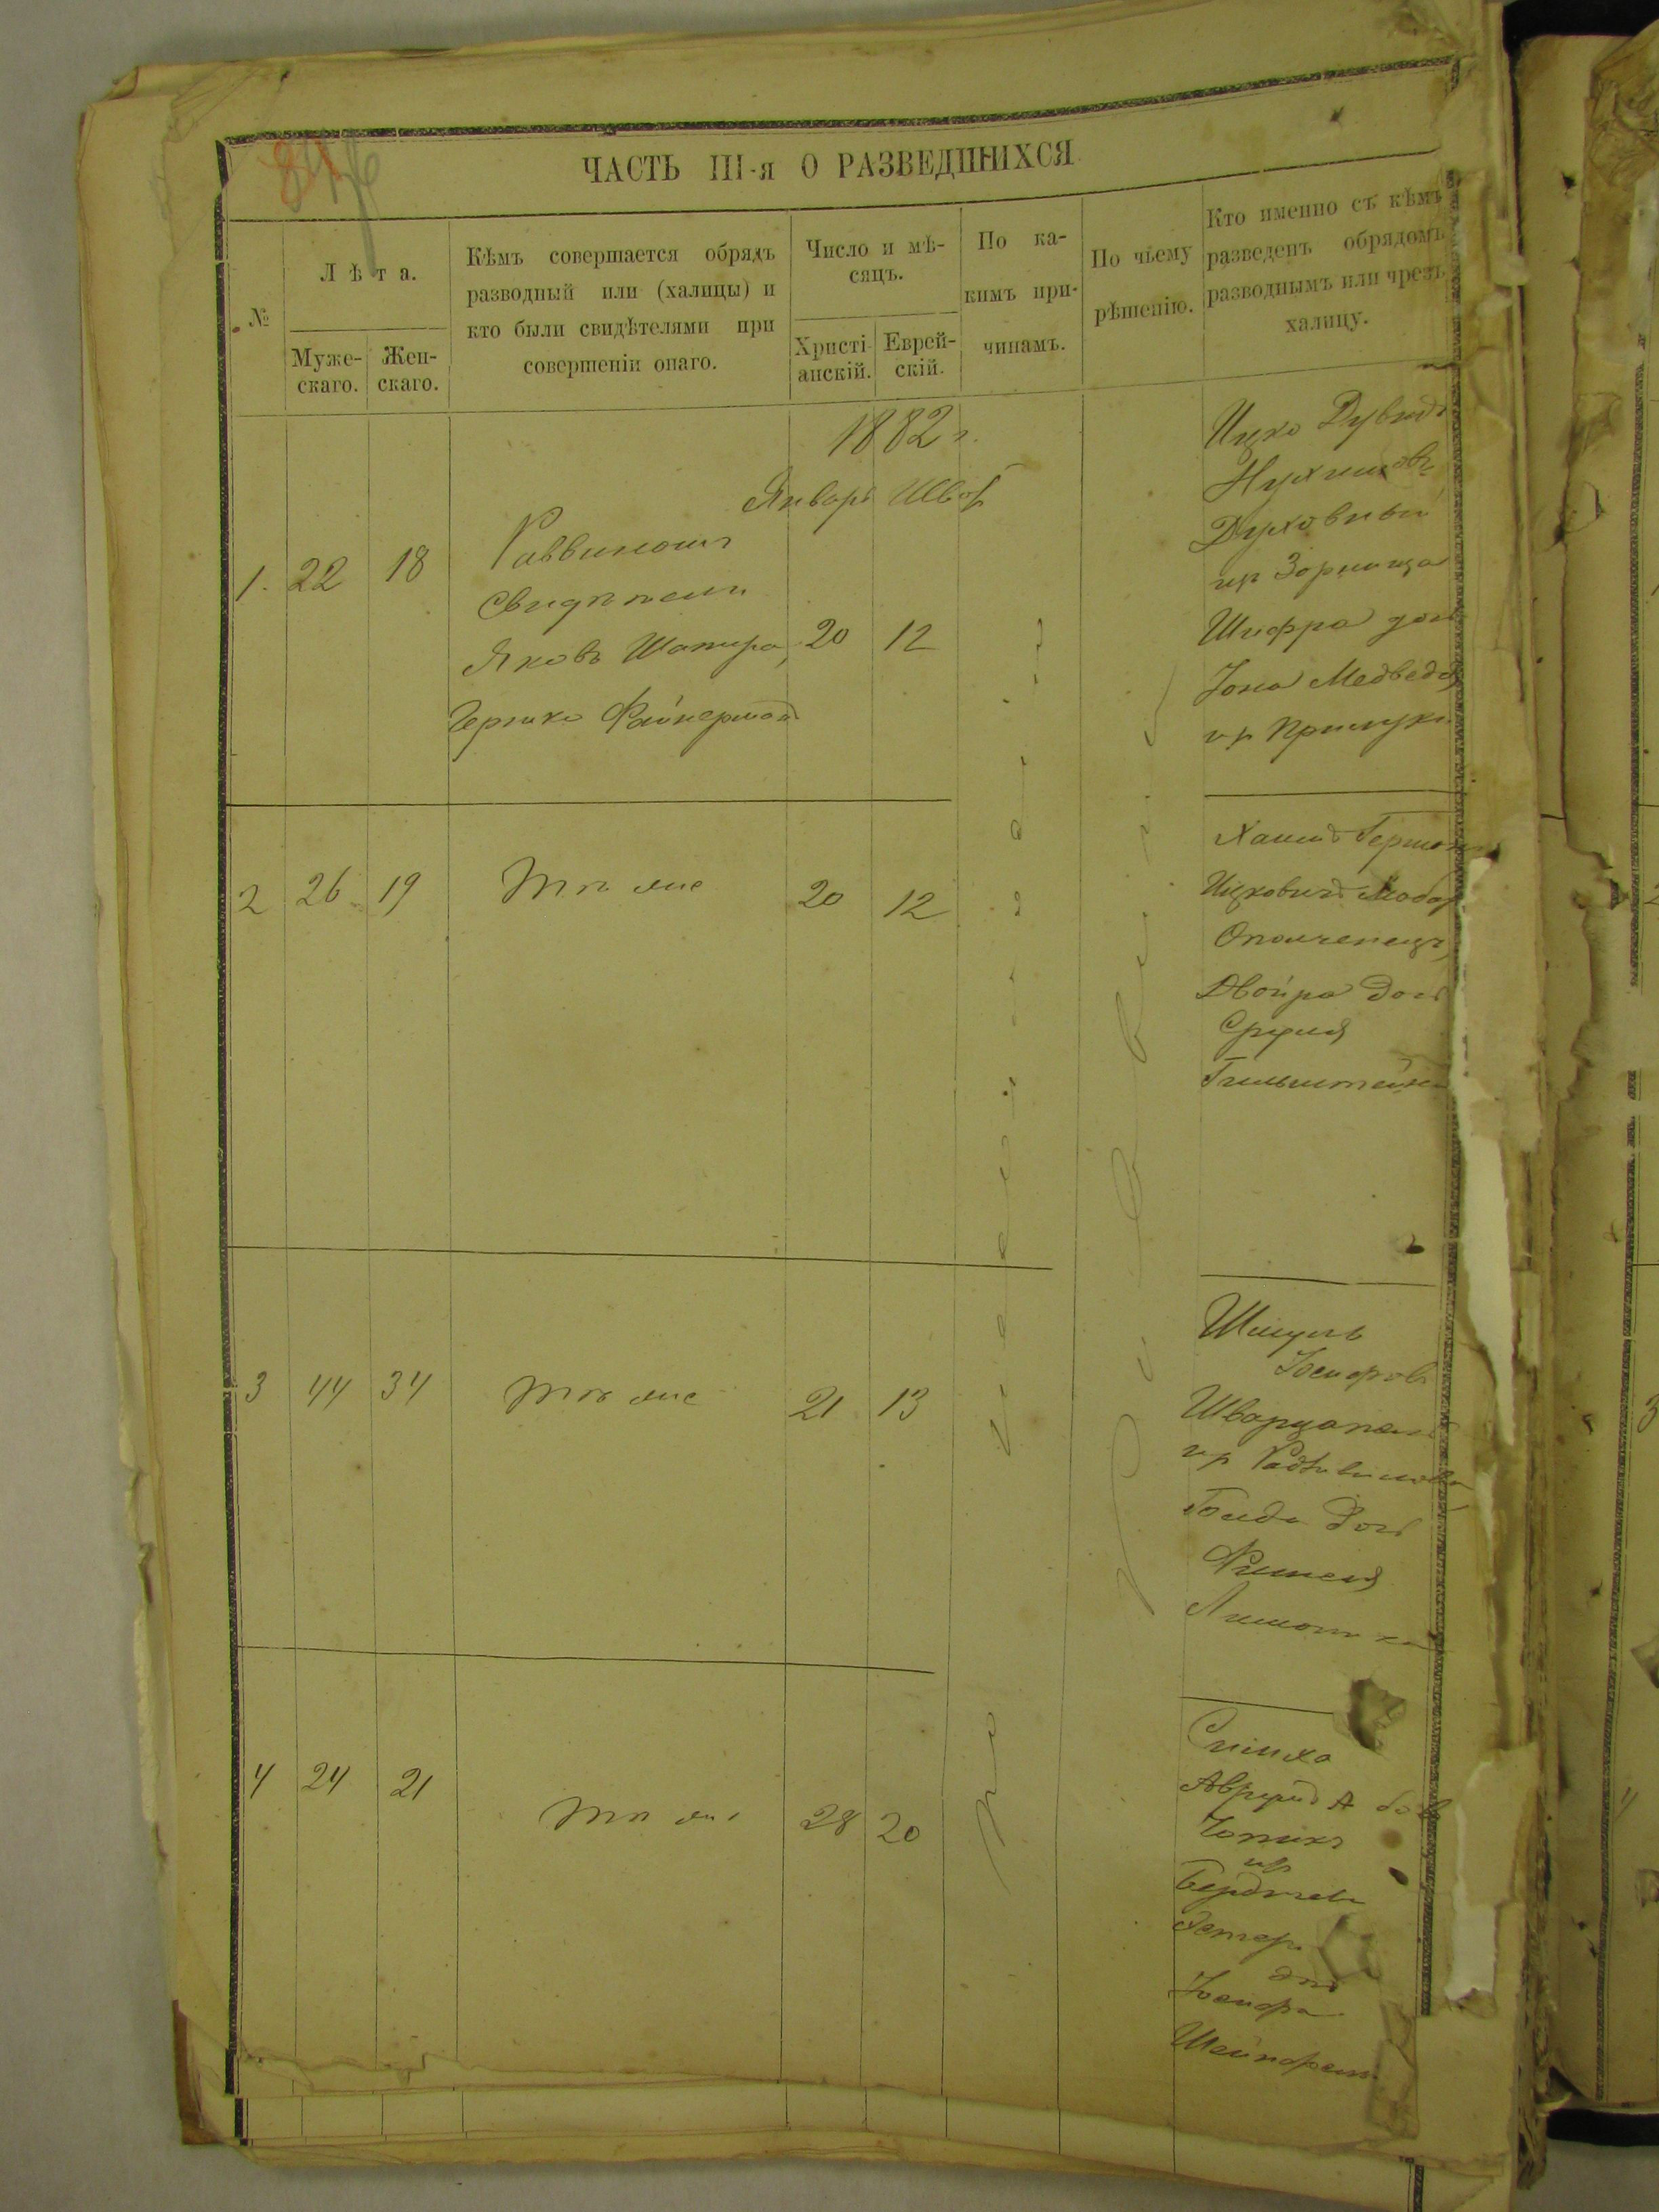 ЧАСТЬ III-я О РАЗВЕДШИХСЯ
№
Лѣта.
Муже-
скаго.
Жен-
скаго.
Кѣмъ совершается обрядъ
разводный или (халицы) и
кто были свидѣтелями при
совершеніи онаго.
Число и мѣ-
сяцъ.
Христі-
анскій.
Еврей-
скій.
По ка-
кимъ при-
чинамъ.
По чьему
рѣшенію.
Кто именно съ кѣмъ
разведенъ обрядомъ
разводнымъ или чрезъ
халицу.
1882 г.
Январь Шват
1. 22 18
Раввиномъ
Свидѣтели
Яковъ Шапира,
Гершко Файнерман
20 12
Ицко Дувидъ
Нухимовъ
Духовный
Шифра дочь
Іона Медведя
Прилуки
2 26 19
Тѣ же
20 12
Хаимъ Гершон
Ицковичъ
Ополченецъ
Двойра дочь
Сруля
Гильштейна
3 44 34
Тѣ же
21 13
Шмуль
Іосифов
Шварцапель
Радзивилов
Голда дочь
Фишеля
4 24 21
Тѣ же
28 20
Симха
Аврумъ А
Бердичев
Эстер
дочь
Іосифа